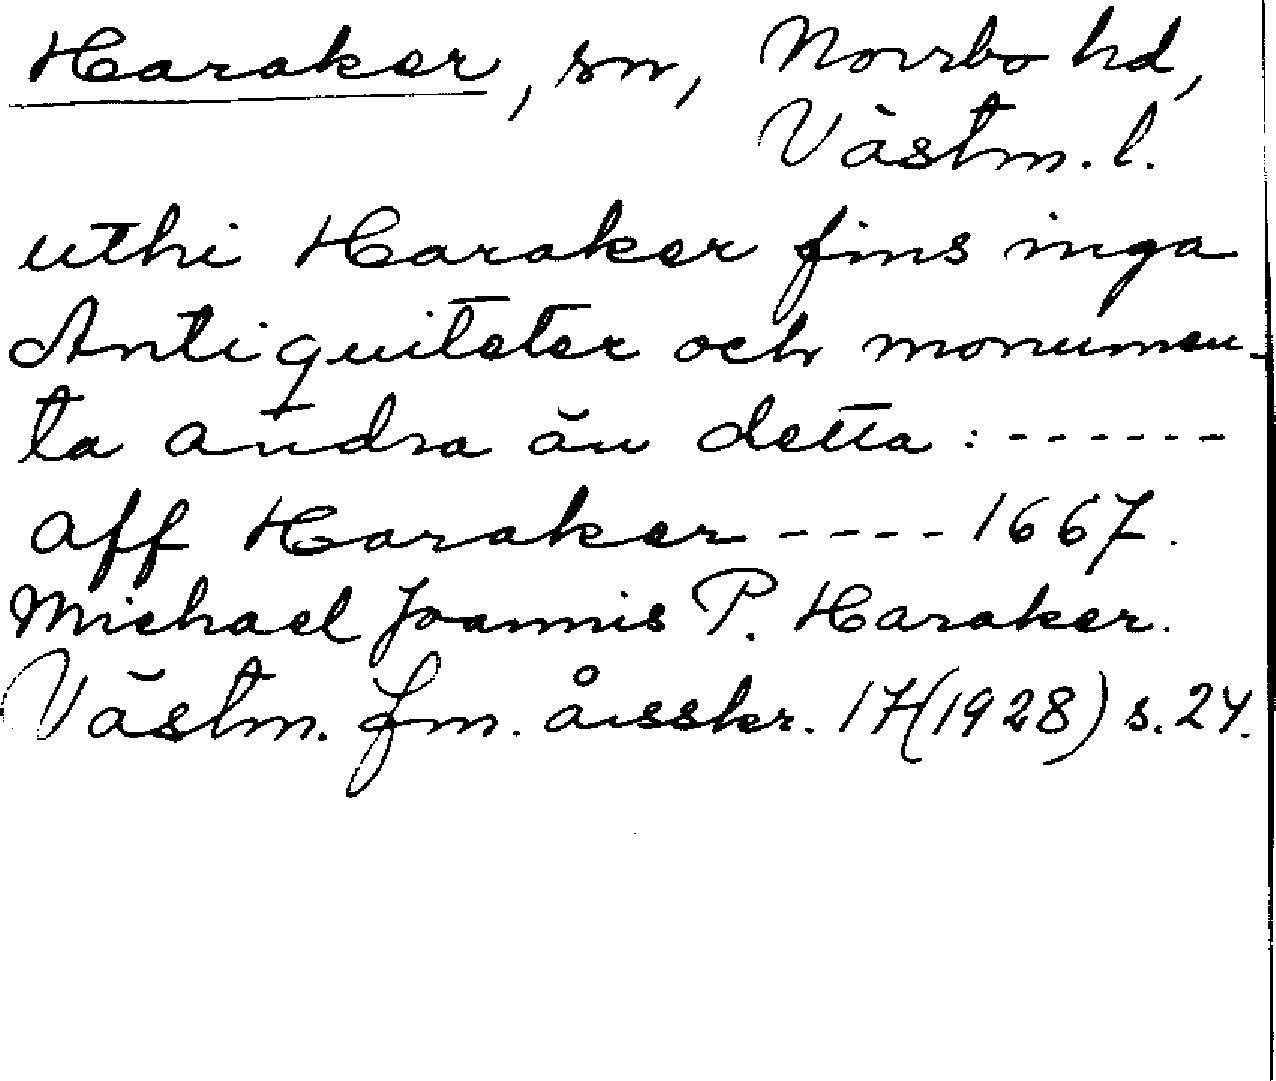 Haraker, sn, Norrbo hd,
Västm. l.
uthi Haraker fins inga
Antiquiteter och monumen-
ta andra än detta : ------
aff Haraker ---- 1667.
Michael Joannis P. Haraker.
Västm. fm. årsskr. 17 (1928) s. 24.